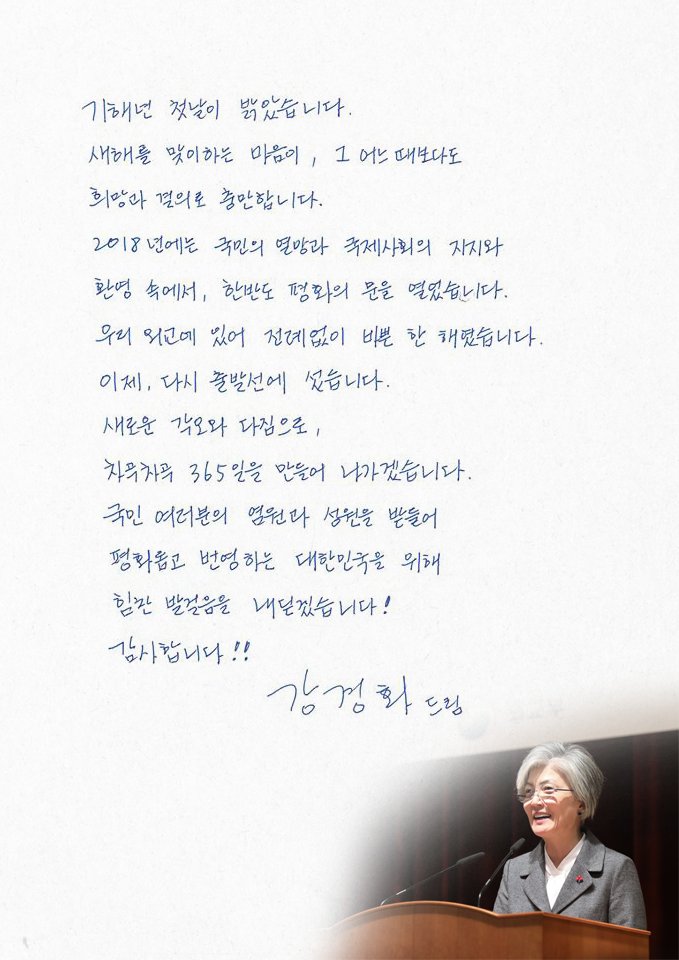 기해년 첫날이 밝았습니다.
새해를 맞이하는 마음이, 그 어느 때보다도
희망과 결의로 충만합니다.
2018년에는 국민의 열망과 국제사회의 지지와
환영 속에서, 한반도 평화의 문을 열었습니다.
우리 외교에 있어 전례없이 바쁜 한 해였습니다.
이제, 다시 출발선에 섰습니다.
새로운 각오와 다짐으로,
차곡차곡 365일을 만들어 나가겠습니다.
국민 여러분의 염원과 성원을 받들어
평화롭고 번영하는 대한민국을 위해
힘찬 발걸음을 내딛겠습니다!
감사합니다!!
강경화 드림